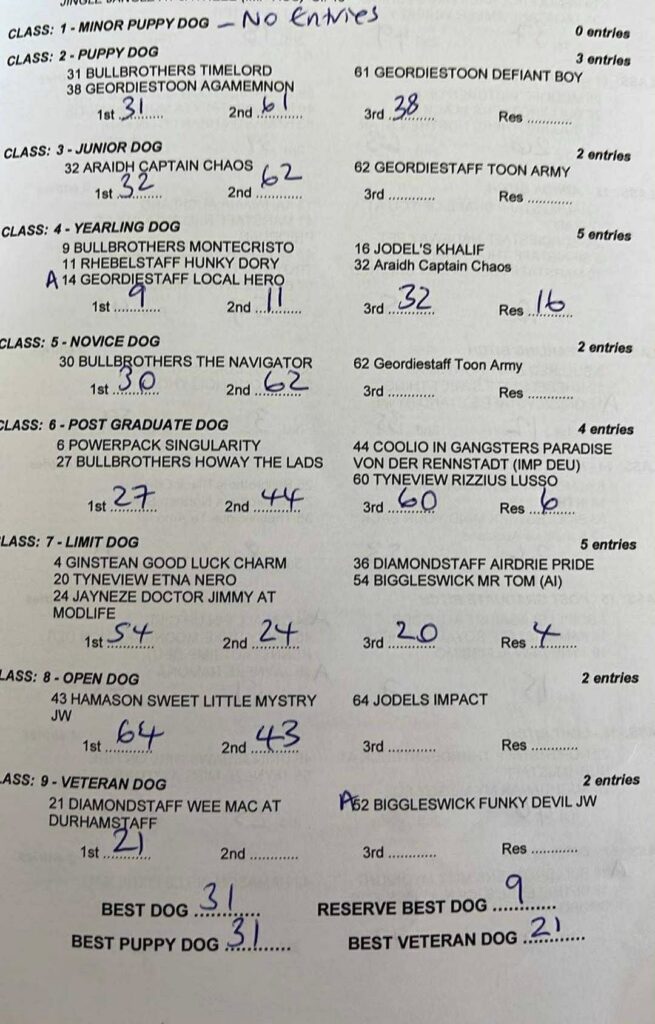 CLASS: 1 - MINOR PUPPY DOG - No Entries 0 entries
CLASS: 2 - PUPPY DOG 3 entries
31 BULLBROTHERS TIMELORD 61 GEORDIESTOON DEFIANT BOY
38 GEORDIESTOON AGAMEMNON
1st 31 2nd 61 3rd 38 Res ............
CLASS: 3 - JUNIOR DOG 2 entries
32 ARAIDH CAPTAIN CHAOS 62 GEORDIESTAFF TOON ARMY
1st 32 2nd 62 3rd ............ Res ............
CLASS: 4 - YEARLING DOG 5 entries
9 BULLBROTHERS MONTECRISTO 16 JODEL'S KHALIF
11 RHEBELSTAFF HUNKY DORY 32 Araidh Captain Chaos
A 14 GEORDIESTAFF LOCAL HERO
1st 9 2nd 11 3rd 32 Res 16
CLASS: 5 - NOVICE DOG 2 entries
30 BULLBROTHERS THE NAVIGATOR 62 Geordiestaff Toon Army
1st 30 2nd 62 3rd ............ Res ............
CLASS: 6 - POST GRADUATE DOG 4 entries
6 POWERPACK SINGULARITY 44 COOLIO IN GANGSTERS PARADISE
27 BULLBROTHERS HOWAY THE LADS VON DER RENNSTADT (IMP DEU)
60 TYNEVIEW RIZZIUS LUSSO
1st 27 2nd 44 3rd 60 Res 6
LASS: 7 - LIMIT DOG 5 entries
4 GINSTEAN GOOD LUCK CHARM 36 DIAMONDSTAFF AIRDRIE PRIDE
20 TYNEVIEW ETNA NERO 54 BIGGLESWICK MR TOM (AI)
24 JAYNEZE DOCTOR JIMMY AT
MODLIFE
1st 54 2nd 24 3rd 20 Res 4
LASS: 8 - OPEN DOG 2 entries
43 HAMASON SWEET LITTLE MYSTRY 64 JODELS IMPACT
JW
1st 64 2nd 43 3rd ............ Res ............
ASS: 9 - VETERAN DOG 2 entries
21 DIAMONDSTAFF WEE MAC AT A 52 BIGGLESWICK FUNKY DEVIL JW
DURHAMSTAFF
1st 21 2nd ............ 3rd ............ Res ............
BEST DOG 31 RESERVE BEST DOG 9
BEST PUPPY DOG 31 BEST VETERAN DOG 21